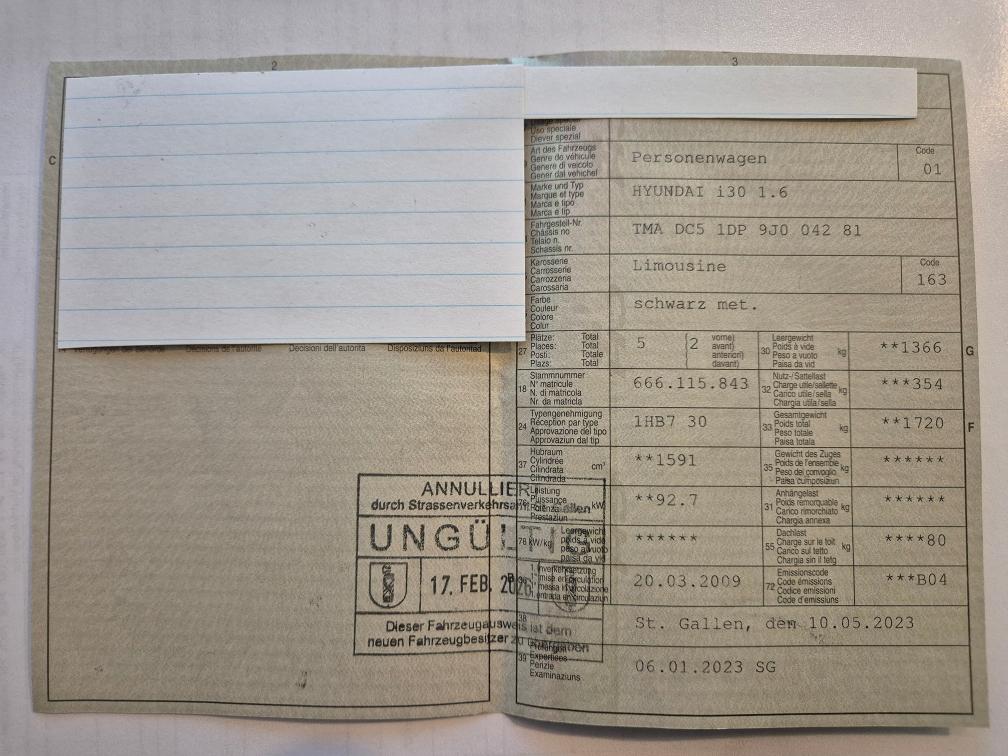 2
3
C
Uso speciale
Diever spezial
Art des Fahrzeugs
Genre de véhicule
Genere di veicolo
Gener dal vehichel
Personenwagen
Code
01
Marke und Typ
Marque et type
Marca e tipo
Marca e tip
HYUNDAI i30 1.6
Fahrgestell-Nr.
Châssis no
Telaio n.
Schassis nr.
TMA DC5 1DP 9J0 042 81
Karosserie
Carrosserie
Carrozzeria
Carossaria
Limousine
Code
163
Farbe
Couleur
Colore
Colur
schwarz met.
Décisions de l'autorité Decisioni dell'autorità Disposiziuns da l'autoritad
27
Plätze: Total
Places: Total
Posti: Totale
Plazs: Total
5
(2
vorne)
avant)
anteriori)
davant)
30
Leergewicht
Poids à vide
Peso a vuoto
Paisa da vid
kg
**1366
G
18
Stammnummer
N° matricule
N. di matricola
Nr. da matricla
666.115.843
32
Nutz-/Sattellast
Charge utile/sellette
Carico utile/sella
Chargia utila/sella
kg
***354
24
Typengenehmigung
Réception par type
Approvazione del tipo
Approvaziun dal tip
1HB7 30
33
Gesamtgewicht
Poids total
Peso totale
Paisa totala
kg
**1720
F
37
Hubraum
Cylindrée
Cilindrata
Cilindrada
cm³
**1591
35
Gewicht des Zuges
Poids de l'ensemble
Peso del convoglio
Paisa cumposiziun
kg
******
76
Leistung
Puissance
Potenza
Prestaziun
kW
**92.7
31
Anhängelast
Poids remorquable
Carico rimorchiato
Chargia annexa
kg
******
78 kW/kg
Leergewicht
poids à vide
peso a vuoto
paisa da vid
******
55
Dachlast
Charge sur le toit
Carico sul tetto
Chargia sin il tetg
kg
****80
36
1. Inverkehrsetzung
1re mise en circulation
1a messa in circolazione
1. entrada en circulaziun
20.03.2009
72
Emissionscode
Code émissions
Codice emissioni
Code d'emissiuns
***B04
38
St. Gallen, den 10.05.2023
39
Prüfungen
Expertises
Perizie
Examinaziuns
06.01.2023 SG
ANNULLIERT
durch Strassenverkehrsamt St. Gallen
UNGÜLTIG
17. FEB. 2026
Dieser Fahrzeugausweis ist dem
neuen Fahrzeugbesitzer zu übergeben